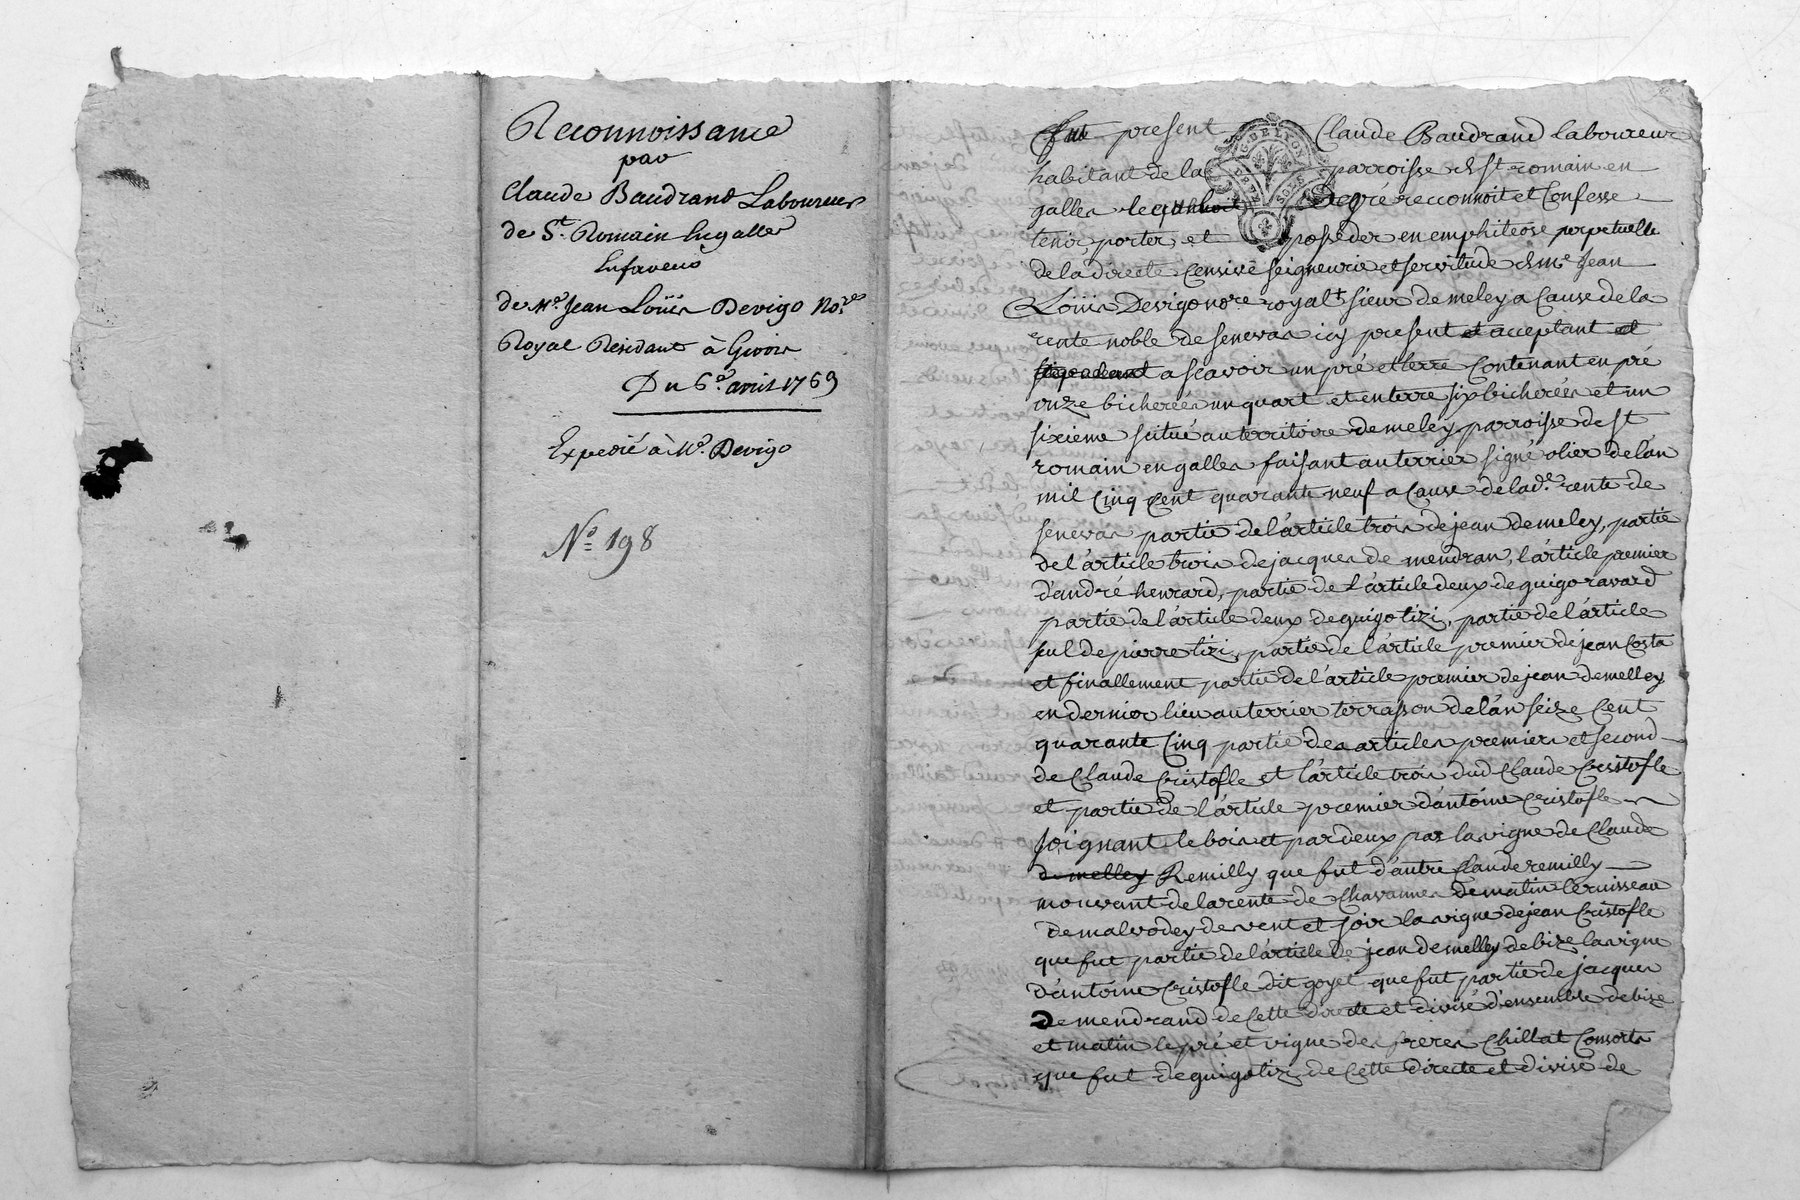 Reconnoissance
par
Claude Baudrand Laboureur
de St. Romain Engalles
Enfaveur
de Me. Jean Loüis Devigo Nore
Royal Residant à Givors
Du 6e. avril 1769
Expedié à Me. Devigo
No. 198
fut present Claude Baudrand laboureur
GNE LYON
DEUX SOLS
habitant de la parroisse de St romain en
galles lequel de gré reconnoit et Confesse
tenir, porter, et posseder en emphiteose perpetuelle
de la directe Censive seigneurie et servitude de me Jean
Loüis Devigo nore royal sieur de meley a Cause de la
rente noble de senevas icy present et acceptant et
a scavoir un pré et terre Contenant en pré
onze bicherées un quart et en terre six bicherées et un
sixieme scitué au territoire de meley parroisse de st
romain en galles faisant au terrier signé olier de l'án
mil Cinq Cent quarante neuf a Cause de lade. rente de
senevas partie de l'article trois de jean de meley, partie
de l'article trois de jacques de mendran, l'article premier
d'andré henrard, partie de l'article deux de guigo ravard
partie de l'article deux de guigo tizi, partie de l'article
seul de pierre tizi, partie de l'article premier de jean Costa
et finallement partie de l'article premier de jean de melley
en dernier lieu au terrier terrasson de l'án seize Cent
quarante Cinq partie des articles premier et second
de Claude Cristofle et l'article trois dud Claude Cristofle
et partie de l'article premier d'antoine Cristofle
joignant le bois et par deux par la vigne de Claude
de melley Remilly que fut d'autre Claude remilly
mouvant de la rente de Chavannes de matin le ruisseau
de malvodey de vent et soir la vigne de jean Cristofle
que fut partie de l'article de jean de melley de bize la vigne
d'antoine Cristofle dit goyet que fut partie de jacques
de mendrand de Cette directe et divisé d'ensemble de bize
et matin le pré et vigne des freres Chillat Consorts
que fut de guigo tizi de Cette directe et divisé de